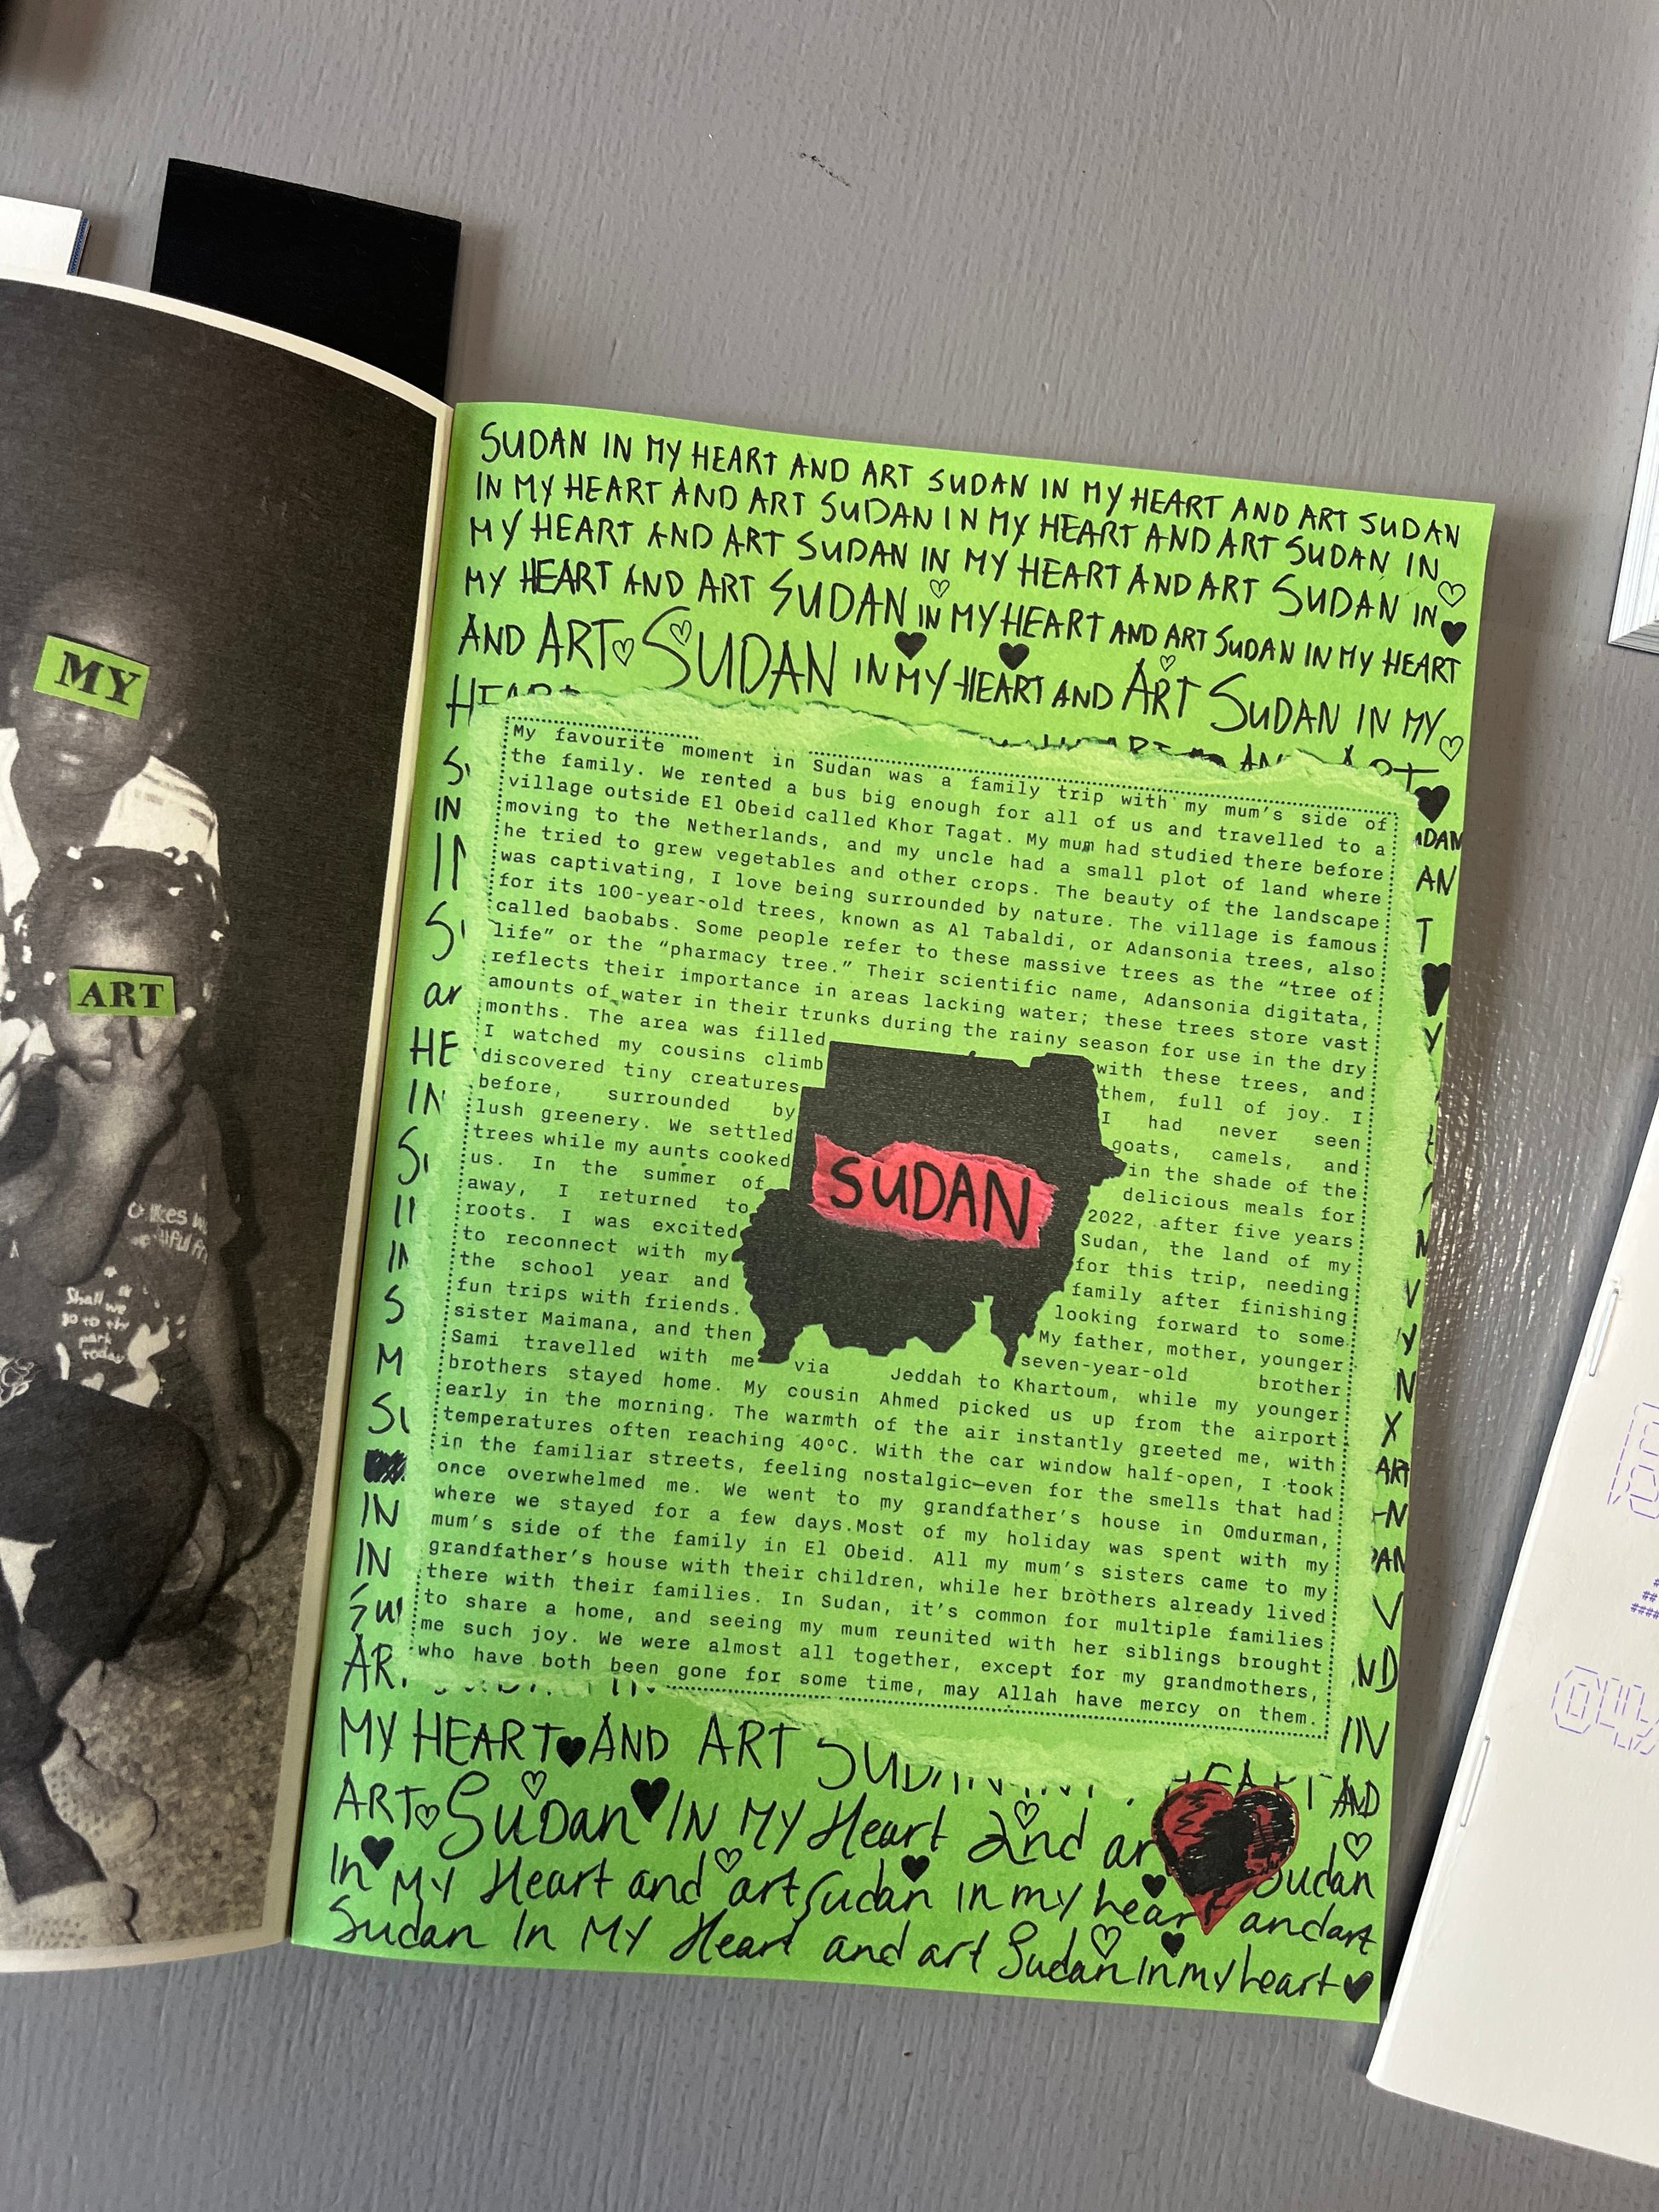 MY
ART
Shall we
go to the
park
today
SUDAN IN MY HEART AND ART SUDAN IN MY HEART AND ART SUDAN
IN MY HEART AND ART SUDAN IN MY HEART AND ART SUDAN IN
MY HEART AND ART SUDAN IN MY HEART AND ART SUDAN IN
MY HEART AND ART SUDAN IN MY HEART AND ART SUDAN IN MY HEART
AND ART SUDAN IN MY HEART AND ART SUDAN IN MY
My favourite moment in Sudan was a family trip with my mum's side of
the family. We rented a bus big enough for all of us and travelled to a
village outside El Obeid called Khor Tagat. My mum had studied there before
moving to the Netherlands, and my uncle had a small plot of land where
he tried to grew vegetables and other crops. The beauty of the landscape
was captivating, I love being surrounded by nature. The village is famous
for its 100-year-old trees, known as Al Tabaldi, or Adansonia trees, also
called baobabs. Some people refer to these massive trees as the “tree of
life” or the “pharmacy tree.” Their scientific name, Adansonia digitata,
reflects their importance in areas lacking water; these trees store vast
amounts of water in their trunks during the rainy season for use in the dry
months. The area was filled with these trees, and
I watched my cousins climb them, full of joy. I
discovered tiny creatures I had never seen
before, surrounded by goats, camels, and
lush greenery. We settled in the shade of the
trees while my aunts cooked delicious meals for
us. In the summer of 2022, after five years
away, I returned to Sudan, the land of my
roots. I was excited for this trip, needing
to reconnect with my family after finishing
the school year and looking forward to some
fun trips with friends. My father, mother, younger
sister Maimana, and then seven-year-old brother
Sami travelled with me via Jeddah to Khartoum, while my younger
brothers stayed home. My cousin Ahmed picked us up from the airport
early in the morning. The warmth of the air instantly greeted me, with
temperatures often reaching 40°C. With the car window half-open, I took
in the familiar streets, feeling nostalgic—even for the smells that had
once overwhelmed me. We went to my grandfather's house in Omdurman,
where we stayed for a few days.Most of my holiday was spent with my
mum's side of the family in El Obeid. All my mum's sisters came to my
grandfather's house with their children, while her brothers already lived
there with their families. In Sudan, it's common for multiple families
to share a home, and seeing my mum reunited with her siblings brought
me such joy. We were almost all together, except for my grandmothers,
who have both been gone for some time, may Allah have mercy on them.
SUDAN
MY HEART AND ART SUDAN
ART Sudan IN MY Heart and
In My Heart and art Sudan in my heart and art
Sudan In My Heart and art Sudan in my heart